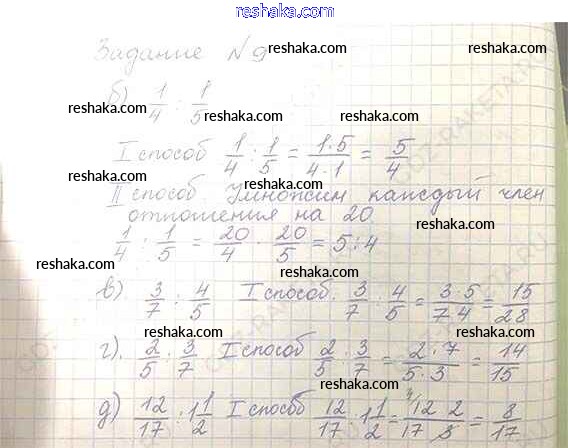 reshaka.com
Задание №9
reshaka.com
reshaka.com
б) 1/4 : 1/5
reshaka.com
reshaka.com
reshaka.com
I способ 1/4 : 1/5 = 1·5/4·1 = 5/4
reshaka.com
reshaka.com
II способ. Умножим каждый член
отношения на 20.
reshaka.com
1/4 : 1/5 = 20/4 : 20/5 = 5:4
reshaka.com
reshaka.com
reshaka.com
в). 3/7 : 4/5 I способ. 3/7 : 4/5 = 3·5/7·4 = 15/28
reshaka.com
reshaka.com
г). 2/5 : 3/7 I способ 2/5 : 3/7 = 2·7/5·3 = 14/15
reshaka.com
reshaka.com
reshaka.com
д) 12/17 : 1 1/2 I способ 12/17 : 1 1/2 = 12 2/17 3 = 8/17
reshaka.com
reshaka.com